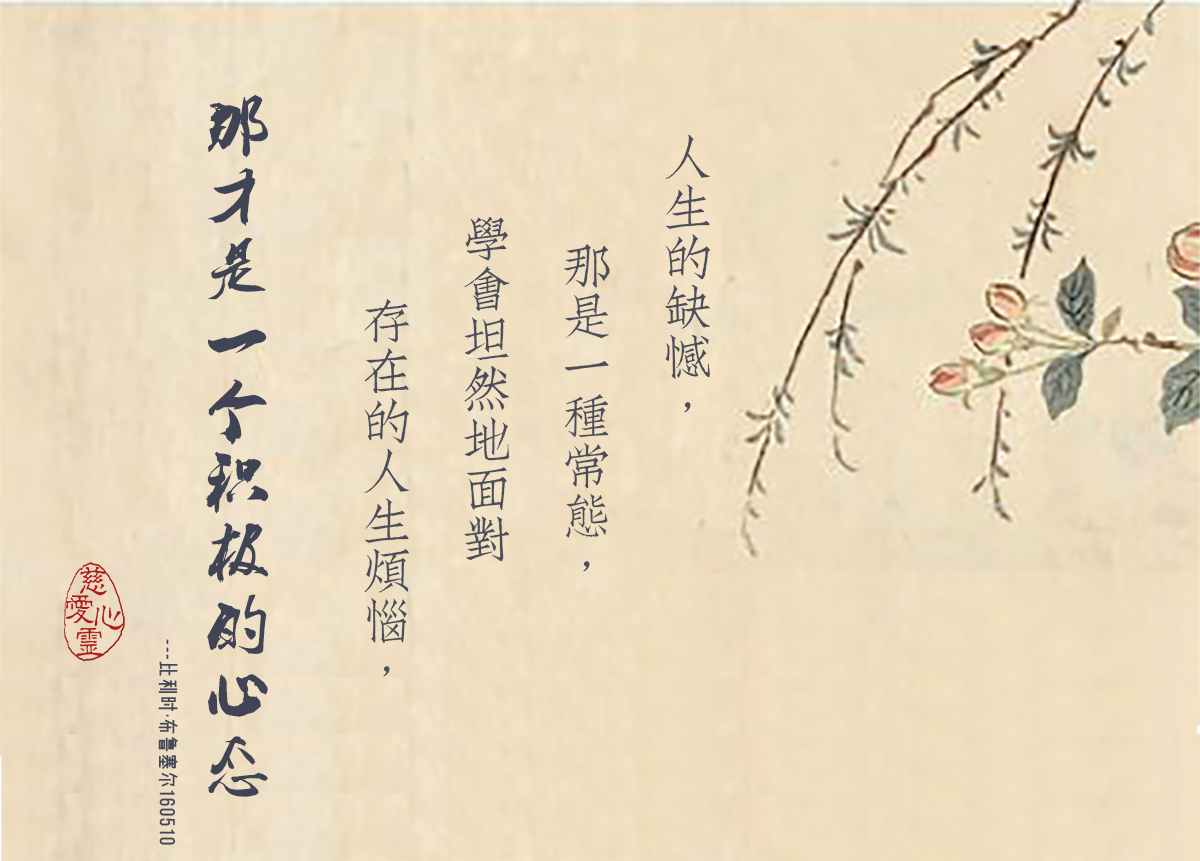 人生的缺憾，
那是一種常態，
學會坦然地面對
存在的人生煩惱，
那才是一个积极的心态
---比利时·布鲁塞尔160510
慈愛心靈